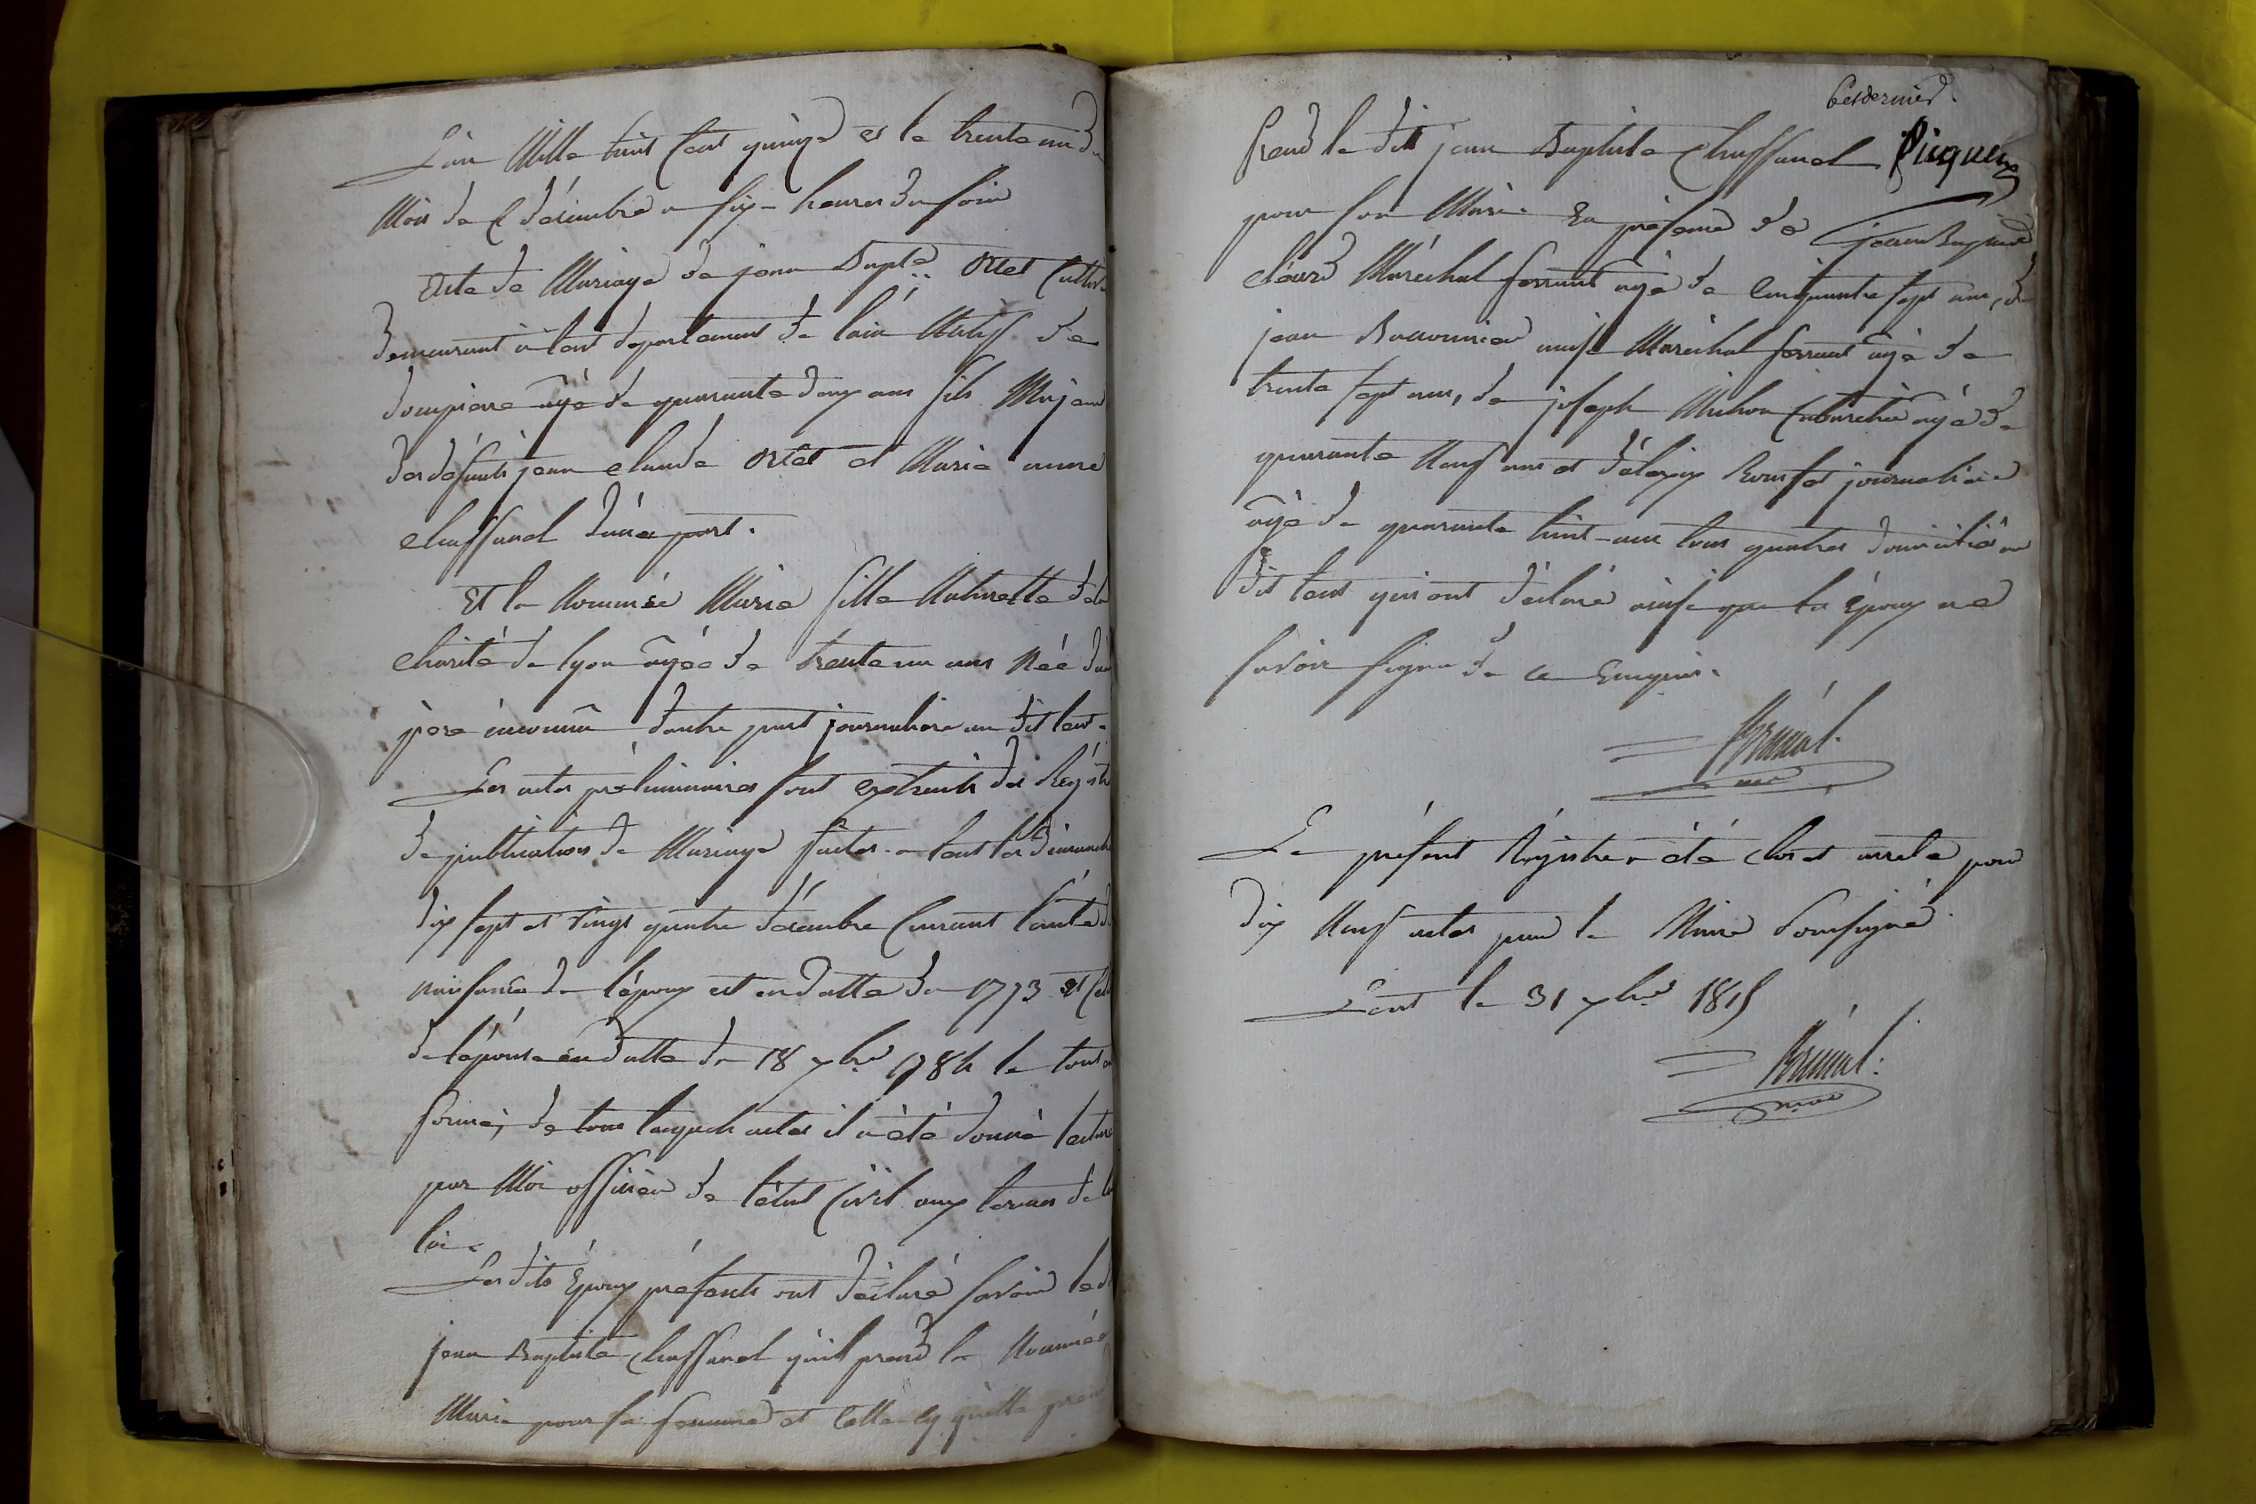 L'an Mille huit Cent quinze et le trente un du
Mois de Décembre a six heures du soir
Acte de Mariage de jean Bapte. Ortet Cultiv.
demeurant à lent departement de lain Natif de
dompierre âgé de quarante deux ans fils Majeur
des défunts jean claude Ortet et Marie anne
chaffanel d'une part.
Et la Nommée Marie fille Naturelle de la
charité de lyon âgée de trente un ans Née d'un
père inconnu d'autre part journaliere au dit lent.
Les actes préliminaires sont extraits des Régistres
de publication de Mariage faites a lent les dimanches
dix sept et vingt quatre décembre Courant l'acte de
naissance de l'époux est en datte de 1773 et celui
de l'épouse en datte du 18 7bre 1784 le tout en
forme, de tous lesquels actes il a été donné lecture
par Moi officier de l'état Civil aux termes de la
loi.
Les dits Époux présents ont déclaré savoir le dt
jean Baptiste chaffanel qu'il prend la Nommée
Marie pour sa femme et celle-cy qu'elle prend
6et dernier.
prend le dit jean Baptiste Chaffanel
pour son Mari. En présence de jean Baptiste
Maréchal ferrant âgé de cinquante sept ans, de
jean aussi Maréchal ferrant âgé de
trente sept ans, de joseph Michon Cabaretier âgé de
quarante Neuf ans et journalier
âgé de quarante huit ans tous quatre domiciliés au
dit lent qui ont déclaré ainsi que les époux ne
savoir signer de ce Enquis.
Le présent Régistre a été clos et arreté pour
dix Neuf actes par le Maire soussigné.
Lent le 31 xbre 1815